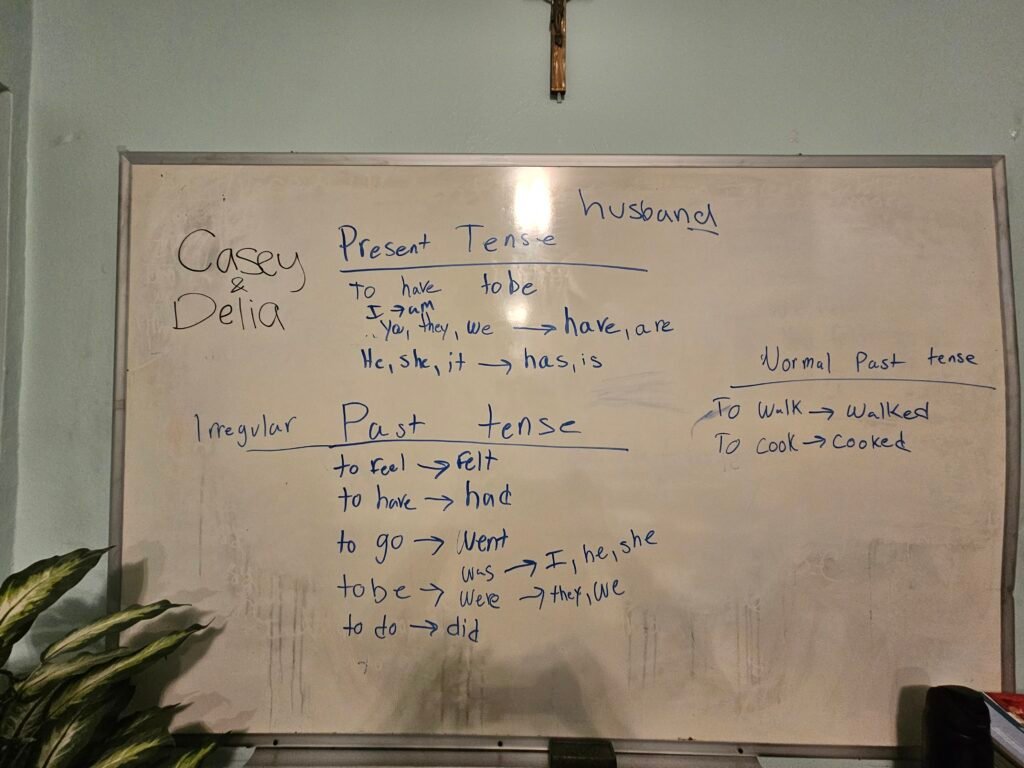 husband
Casey
&
Delia
Present Tense
To have to be
I → am
You, they, we → have, are
He, she, it → has, is
Normal Past tense
To Walk → Walked
To Cook → Cooked
Irregular Past tense
to feel → Felt
to have → had
to go → Went
to be → was → I, he, she
were → they, we
to do → did